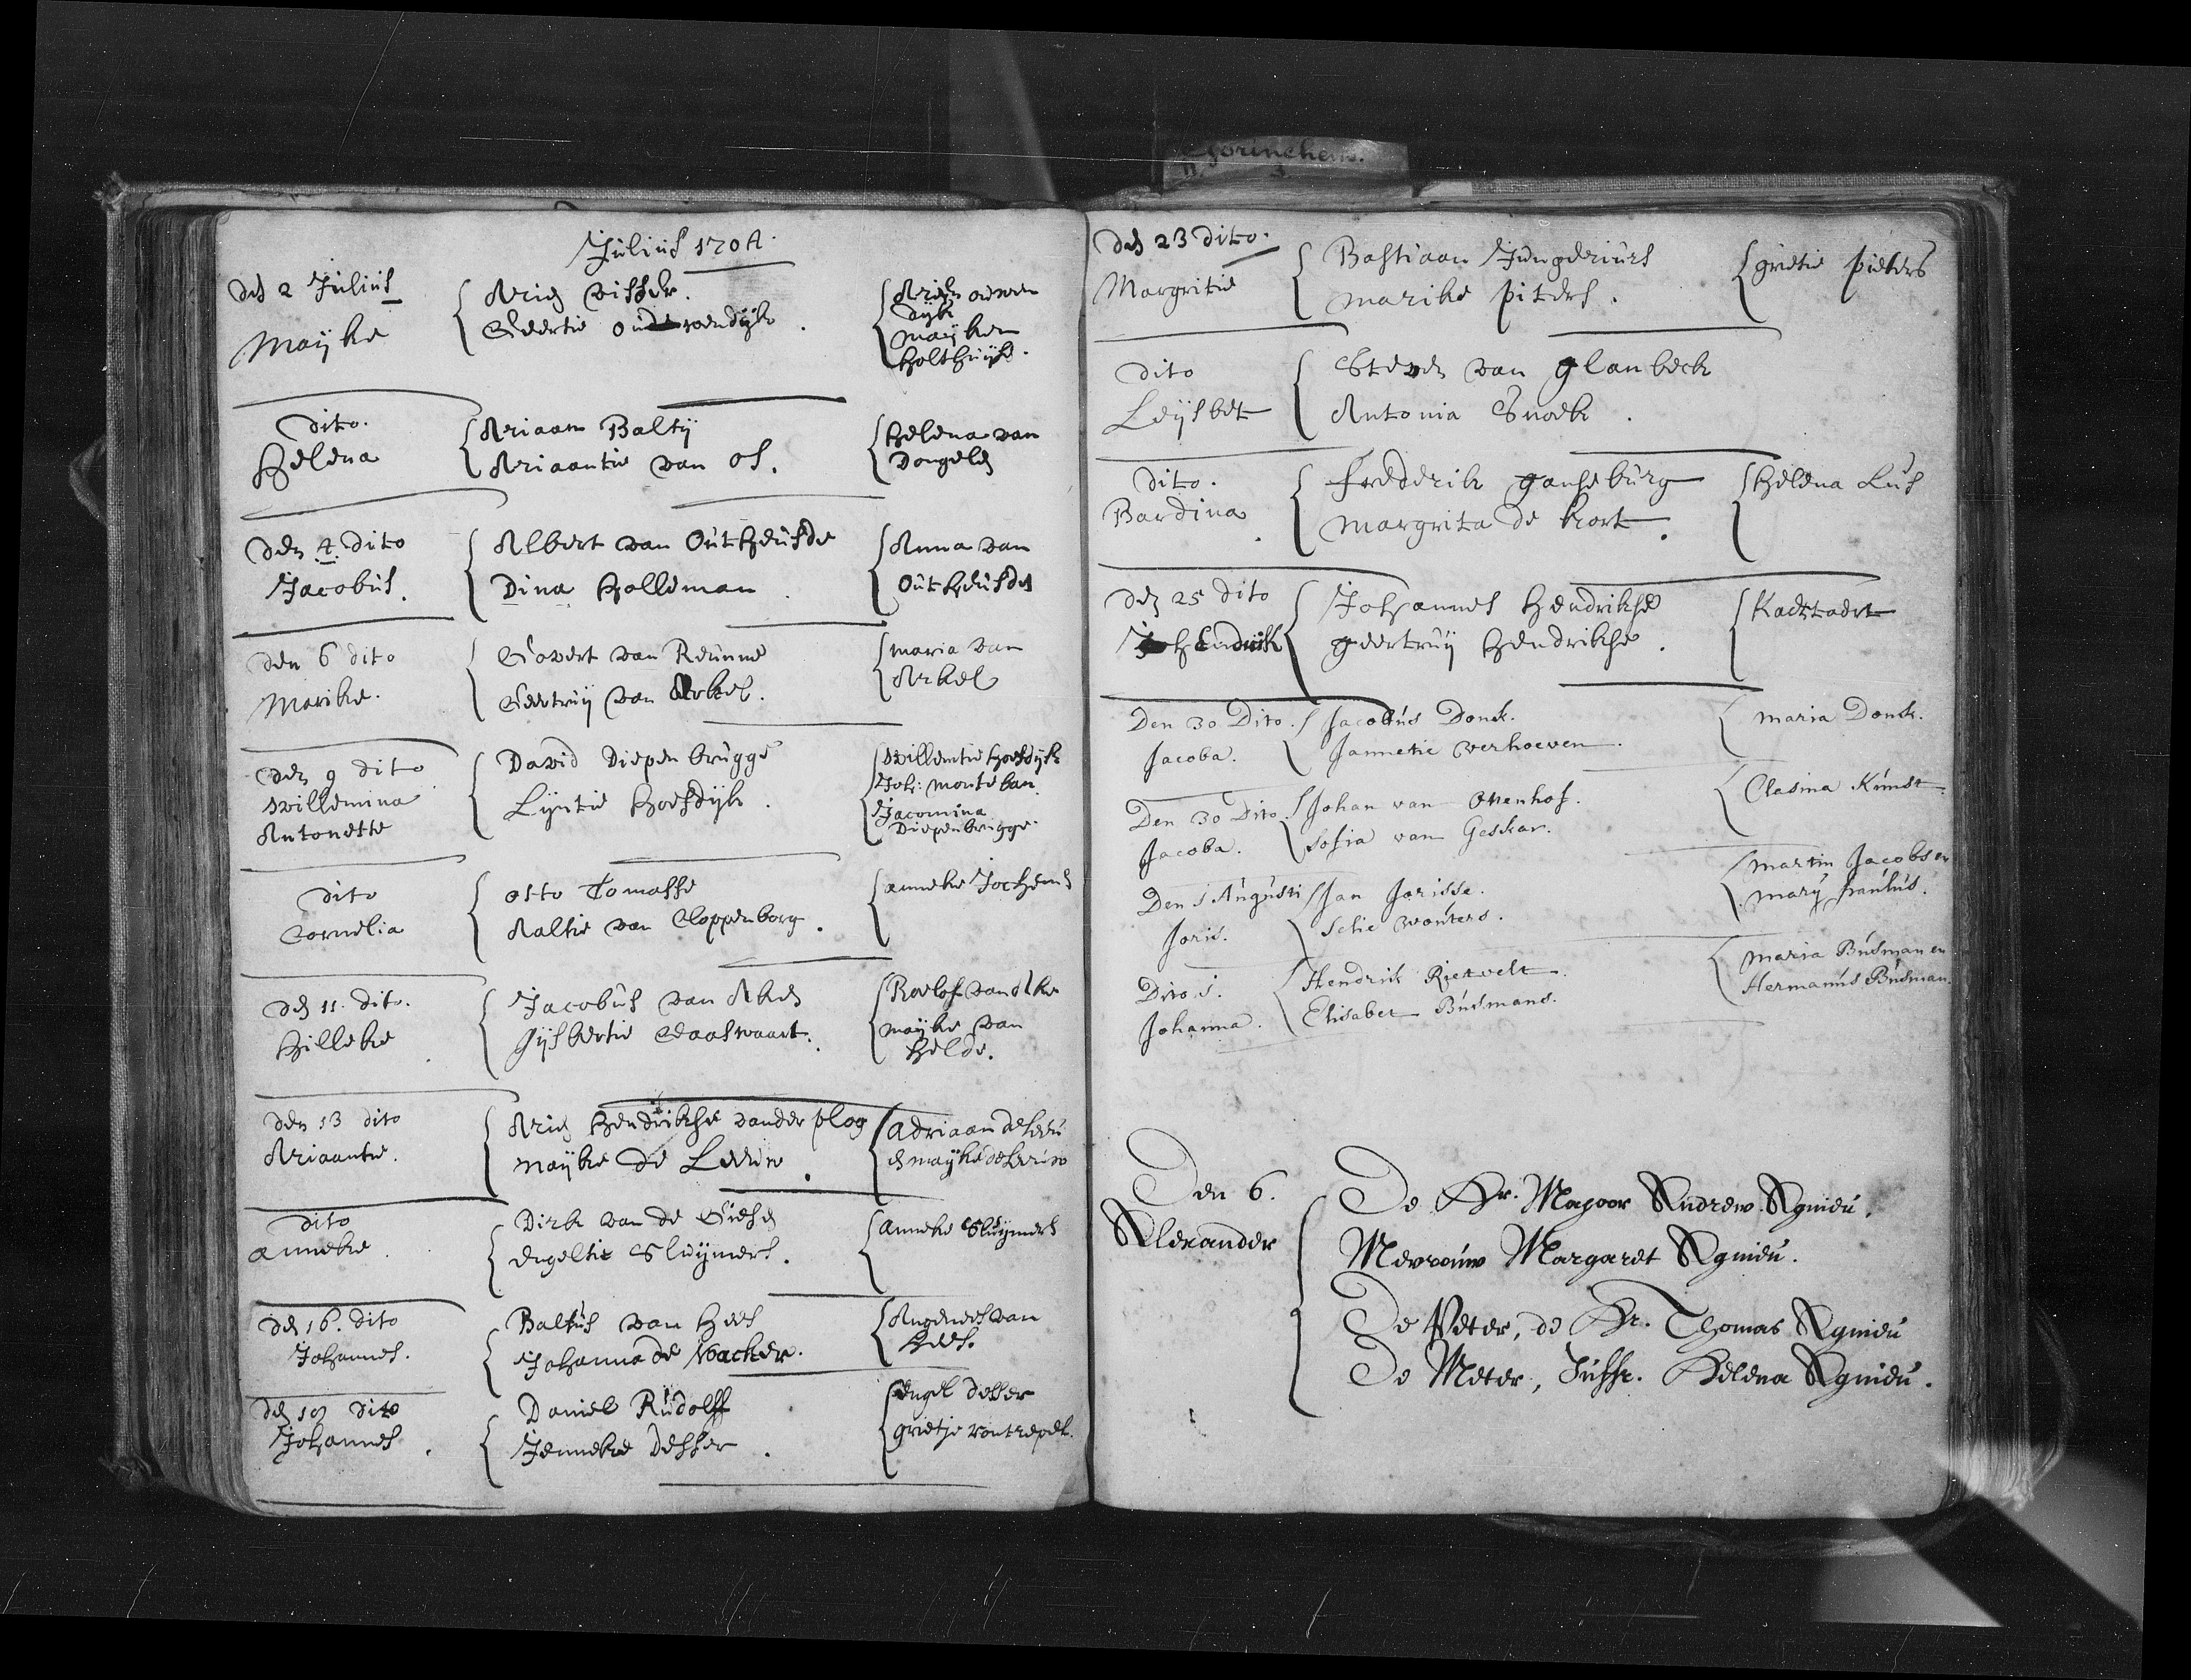 Gorinchem.
Julius 1704.
den 2 Julius
Maÿke
Arien visser.
Geertie
Maÿken
Holthuÿse.
dito.
Helena
Ariaan Baltÿ
Ariaantie van os.
Helena van
Dongelen
den 4 dito
Jacobus.
Albert van Outheusde
Dina Holleman
Anna van
Outheusden
den 6 dito
Marike.
Govert van Reunne
Geertruÿ van Arkel.
maria van
Arkel
den 9 dito
willemina
Antonette
David Diepenbrugge
Lijntie Hoefdÿk.
willemtie Hoefdÿk
Joh: monteban
Jacomina
Diepenbrugge.
dito
Cornelia
otto Tomasse
Aaltie van Cloppenborg.
anneke Jochems
den 11. dito.
Hilleke
Jacobus van Aken
Gÿsbertie Claaswaart.
Roelof van Aken
maÿke van
Helde.
den 13 dito
Ariaantie.
Arien Hendrikse vander plog
maÿke de Leeuw.
Adriaan de Leeu
en maÿke de Leeuw
dito
anneke
Dirk van de Giesen
Engeltie Sluÿmers.
anneke Sluÿmers
den 16. dito
Johannes.
Baltus van Hees
Johanna de Backer.
Angenees van
Hees.
den 19 dito
Johannes
Daniel Rudolff
Jenneke Desser
Engel desser
grietje
den 23 dito.
Margritie
Bastiaan Jungerius
marike piters.
grietie pieters
dito
Leÿsbet
Steven van glanbeek
Antonia Snoek.
dito.
Bardina
frederik ganseburg
margrita de kort.
Helena Lus
den 25 dito
Hendrik
Johannes Hendrikse
geertruÿ Hendrikse.
Den 30 Dito.
Jacoba.
Jacobus Donck.
Jannetie verhoeven.
maria Donck.
Den 30 Dito.
Jacoba.
Johan van Ottenhof.
Sofia van Geskar.
Clasina Kunst.
Den 5 Augusti
Joris.
Jan Jorisse.
wouters.
martin Jacobs en
marÿ paulus.
Dito 5.
Johanna.
Hendrik Rietvelt.
Elisabet Busmans.
maria Busman en
Hermanus Busman.
Den 6.
Alexander
De Hr. Majoor Andrew Agnieu.
Mevrouw Margaret Agnieu.
De Peter, de Hr. Thomas Agnieu
De Meter, Juffr. Helena Agnieu.